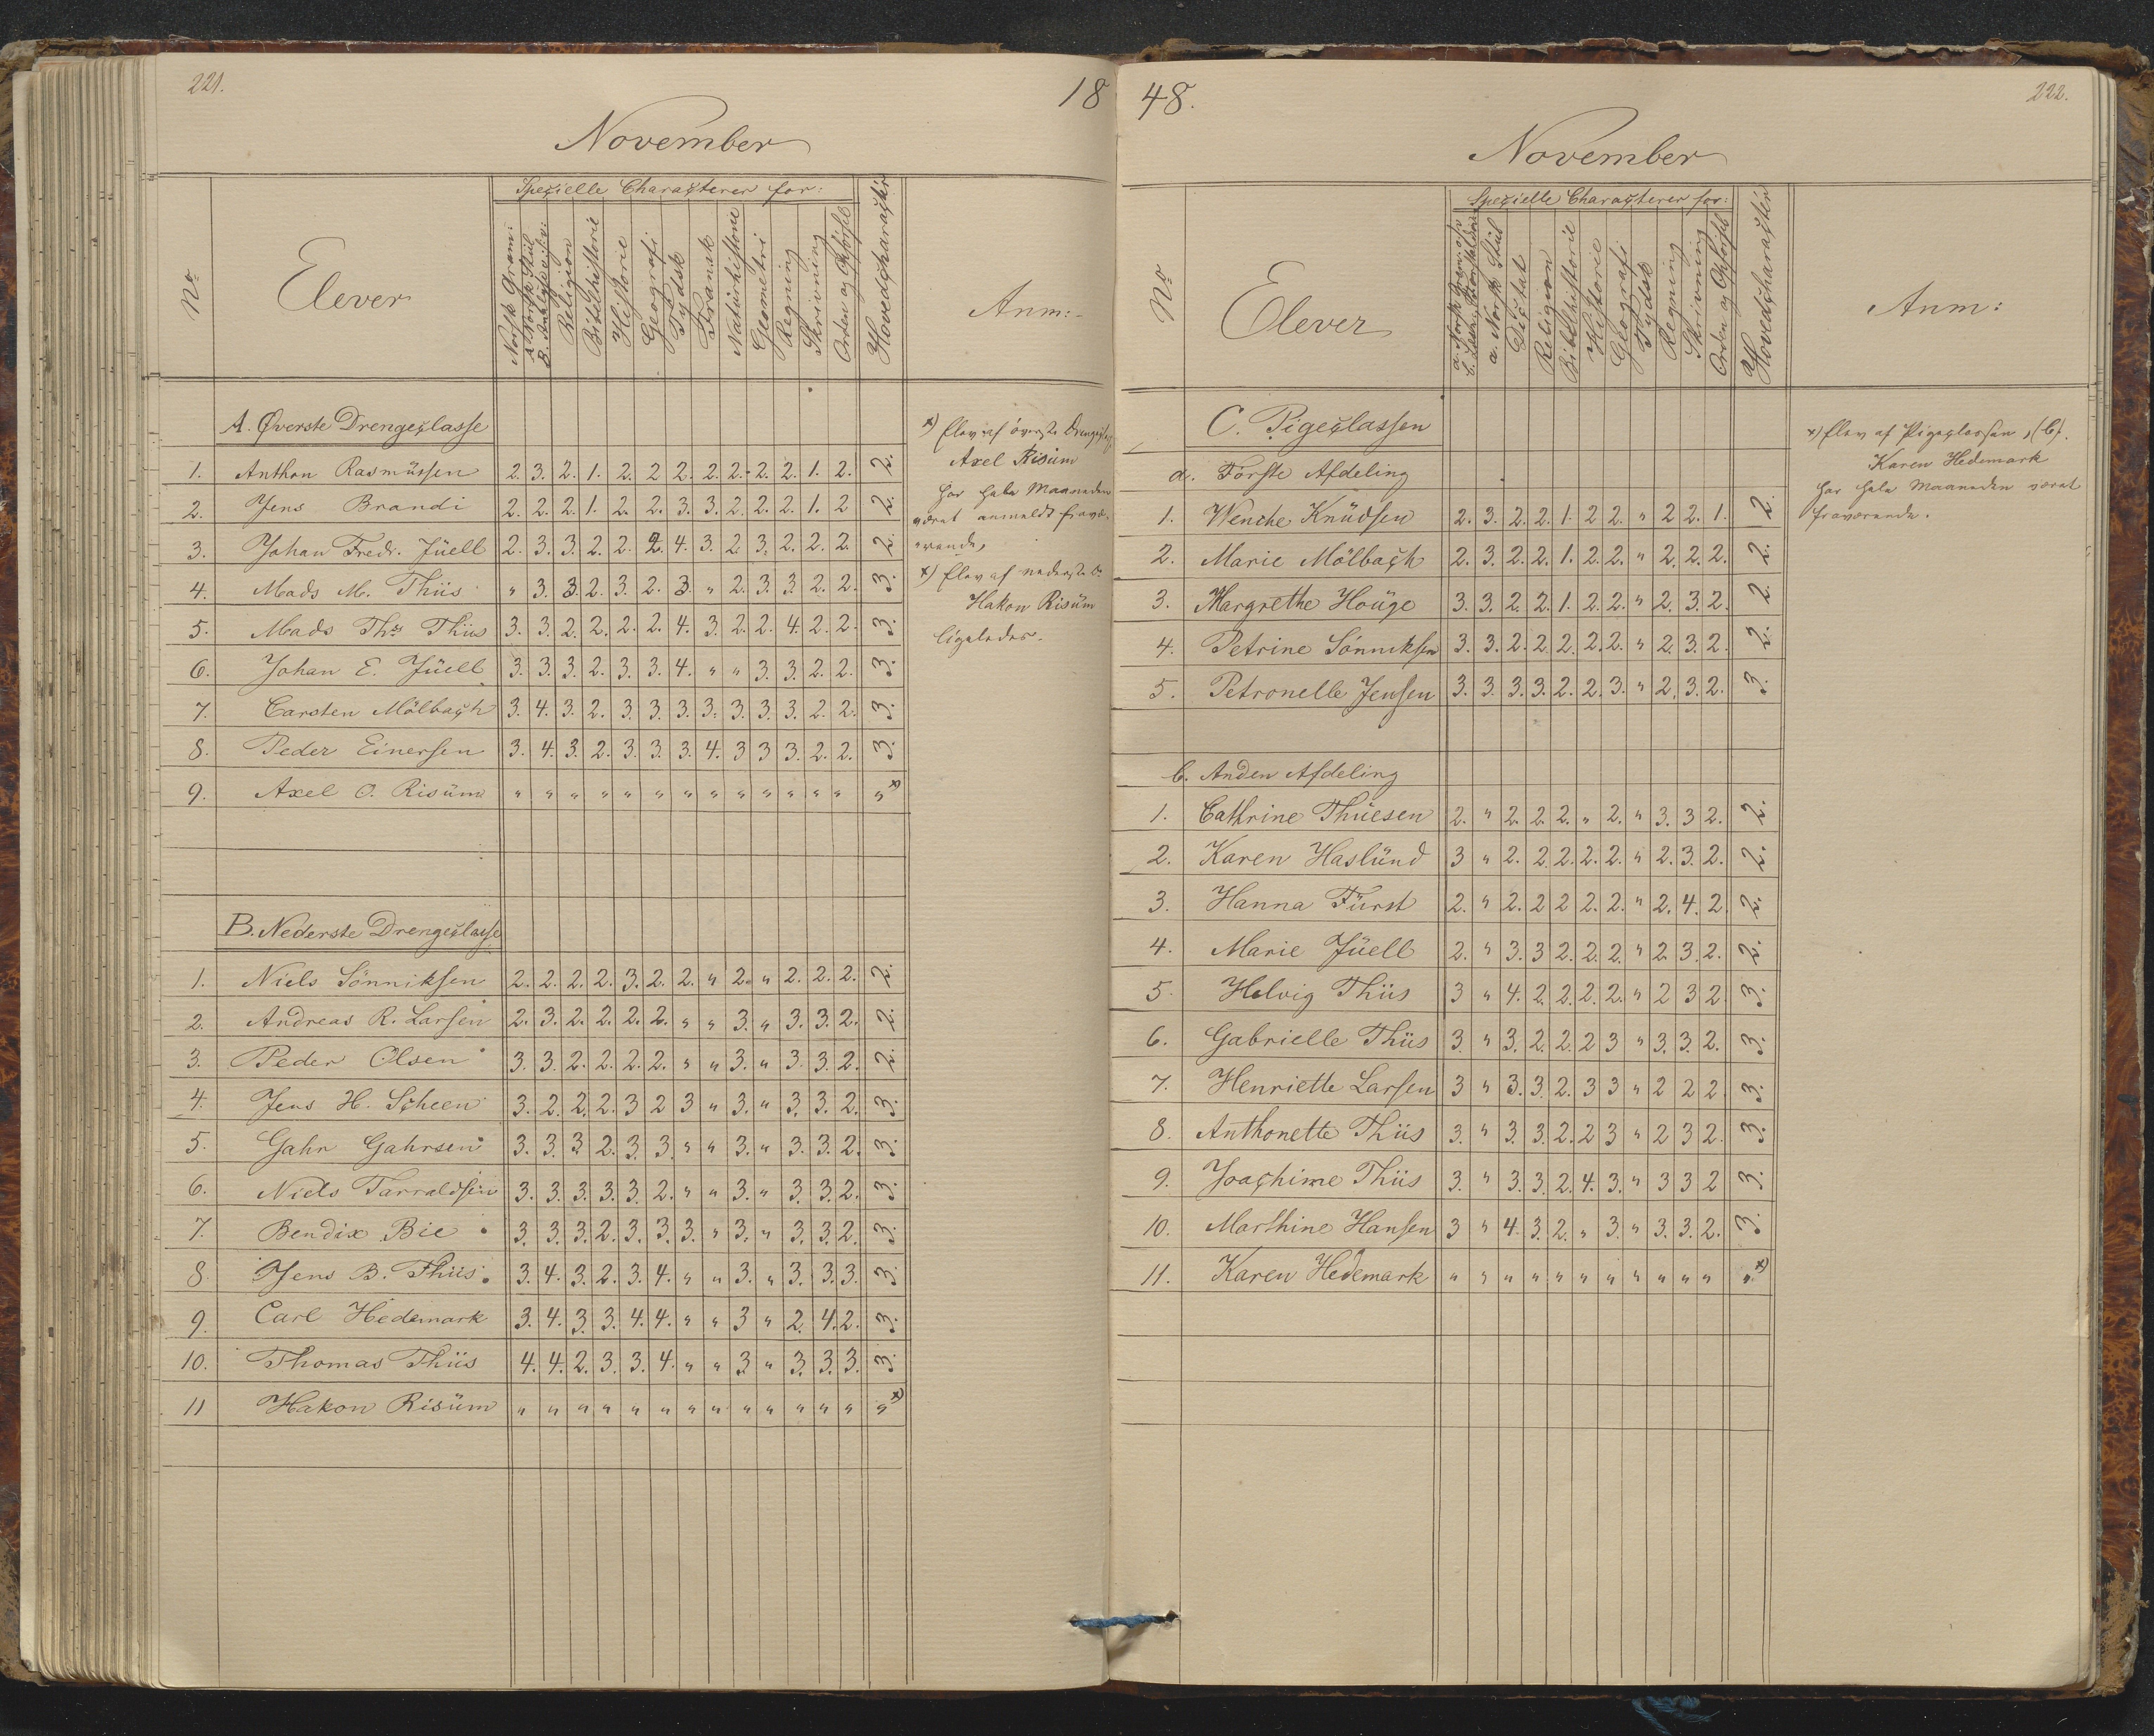 221.
18
November
Specielle Characterer for:
No
Elever
Norsk Gram:
A. Norsk Stiil
B. Analyse
Religion
Bibelhistorie
Historie
Geografi
Tydsk
Fransk
Naturhistorie
Geometri
Regning
Skrivning
Orden og Opførsel
Hovedcharacter
Anm:
A. Øverste Drengeclasse
1. Anthon Rasmüssen 2. 3. 2. 1. 2. 2 2. 2. 2. 2. 2. 1. 2. 2.
2. Jens Brandi 2. 2. 2. 1. 2. 2. 3. 3. 2. 2. 2. 1. 2 2.
3. Johan Fredr. Jüell 2. 3. 3. 2. 2. 2. 4. 3. 2. 3. 2. 2. 2. 2.
4. Mads M. Thiis " 3. 3. 2. 3. 2. 3. " 2. 3. 3. 2. 2. 3.
5. Mads Ths Thiis 3. 3. 2. 2. 2. 2. 4. 3. 2. 2. 4. 2. 2. 3.
6. Johan E. Jüell 3. 3. 3. 2. 3. 3. 4. " " 3. 3. 2. 2. 3.
7. Carsten Mölbach 3. 4. 3. 2. 3. 3. 3. 3. 3. 3. 3. 2. 2. 3.
8. Peder Einersen 3. 4. 3. 2. 3. 3. 3. 4. 3 3 3. 2. 2. 3.
9. Axel O. Risüm " " " " " " " " " " " " " " x)
x) Elev af överste Drengeclasse
Axel Risüm
har hele Maaneden
været anmeldt fravæ-
rende,
x) Elev af nederste D.
Hakon Risüm
ligeledes.
B. Nederste Drengeclasse
1. Niels Sönniksen 2. 2. 2. 2. 3. 2. 2. " 2. " 2. 2. 2. 2.
2. Andreas R. Larsen 2. 3. 2. 2. 2. 2. " " 3. " 3. 3. 2. 2.
3. Peder Olsen 3. 3. 2. 2. 2. 2. " " 3. " 3. 3. 2. 2.
4. Jens H. Scheen 3. 2. 2. 2. 3 2 3 " 3. " 3. 3. 2. 3.
5. Gahr Gahrsen 3. 3. 3 2. 3. 3. " " 3. " 3. 3. 2. 3.
6. Niels Tarraldsen 3. 3. 3. 3. 3. 2. " " 3. " 3. 3. 2. 3.
7. Bendix Bie 3. 3. 3. 2. 3. 3. 3. " 3. " 3. 3. 2. 3.
8. Jens B. Thiis 3. 4. 3. 2. 3. 4. " " 3. " 3. 3. 3. 3.
9. Carl Hedemark 3. 4. 3. 3. 4. 4. " " 3 " 2. 4. 2. 3.
10. Thomas Thiis 4. 4. 2. 3. 3. 4. " " 3. " 3. 3. 3. 3.
11 Hakon Risüm " " " " " " " " " " " " " " x)
48.
222.
November
Specielle Characterer for:
No
Elever
a. Norsk
a. Norsk Stiil
Dictat
Religion
Bibelhistorie
Historie
Geografi
Tydsk
Regning
Skrivning
Orden og Opførsel
Hovedcharacter
Anm:
C. Pigeclassen
a. Förste Afdeling
1. Wenche Knüdsen 2. 3. 2. 2. 1. 2 2. " 2 2. 1. 2.
2. Marie Mölbach 2. 3. 2. 2. 1. 2. 2. " 2. 2. 2. 2.
3. Margrethe Houge 3. 3. 2. 2. 1. 2. 2. " 2. 3. 2. 2.
4. Petrine Sönniksen 3. 3. 2. 2. 2. 2. 2. " 2. 3. 2. 2.
5. Petronelle Jensen 3. 3. 3. 3. 2. 2. 3. " 2. 3. 2. 3.
x) Elev af Pigeclassen, (b).
Karen Hedemark
har hele Maaneden været
fraværende.
b. Anden Afdeling
1. Cathrine Thuesen 2. " 2. 2. 2. " 2. " 3. 3 2. 2.
2. Karen Haslünd 3 " 2. 2. 2. 2. 2. " 2. 3. 2. 2.
3. Hanna Fürst 2. " 2. 2 2 2. 2. " 2. 4. 2. 2.
4. Marie Jüell 2. " 3. 3 2. 2. 2. " 2. 3. 2. 2.
5. Helvig Thiis 3 " 4. 2. 2. 2. 2. " 2 3 2. 3.
6. Gabrielle Thiis 3. " 3. 2. 2. 2 3 " 3. 3. 2. 3.
7. Henriette Larsen 3 " 3. 3. 2. 3 3 " 2 2 2. 3.
8. Anthonette Thiis 3. " 3. 3. 2. 2 3 " 2 3 2. 3.
9. Joachime Thiis 3. " 3. 3. 2. 4. 3. " 3 3 2 3.
10. Marthine Hansen 3 " 4. 3. 2. " 3. " 3. 3. 2. 3.
11. Karen Hedemark " " " " " " " " " " " " x)